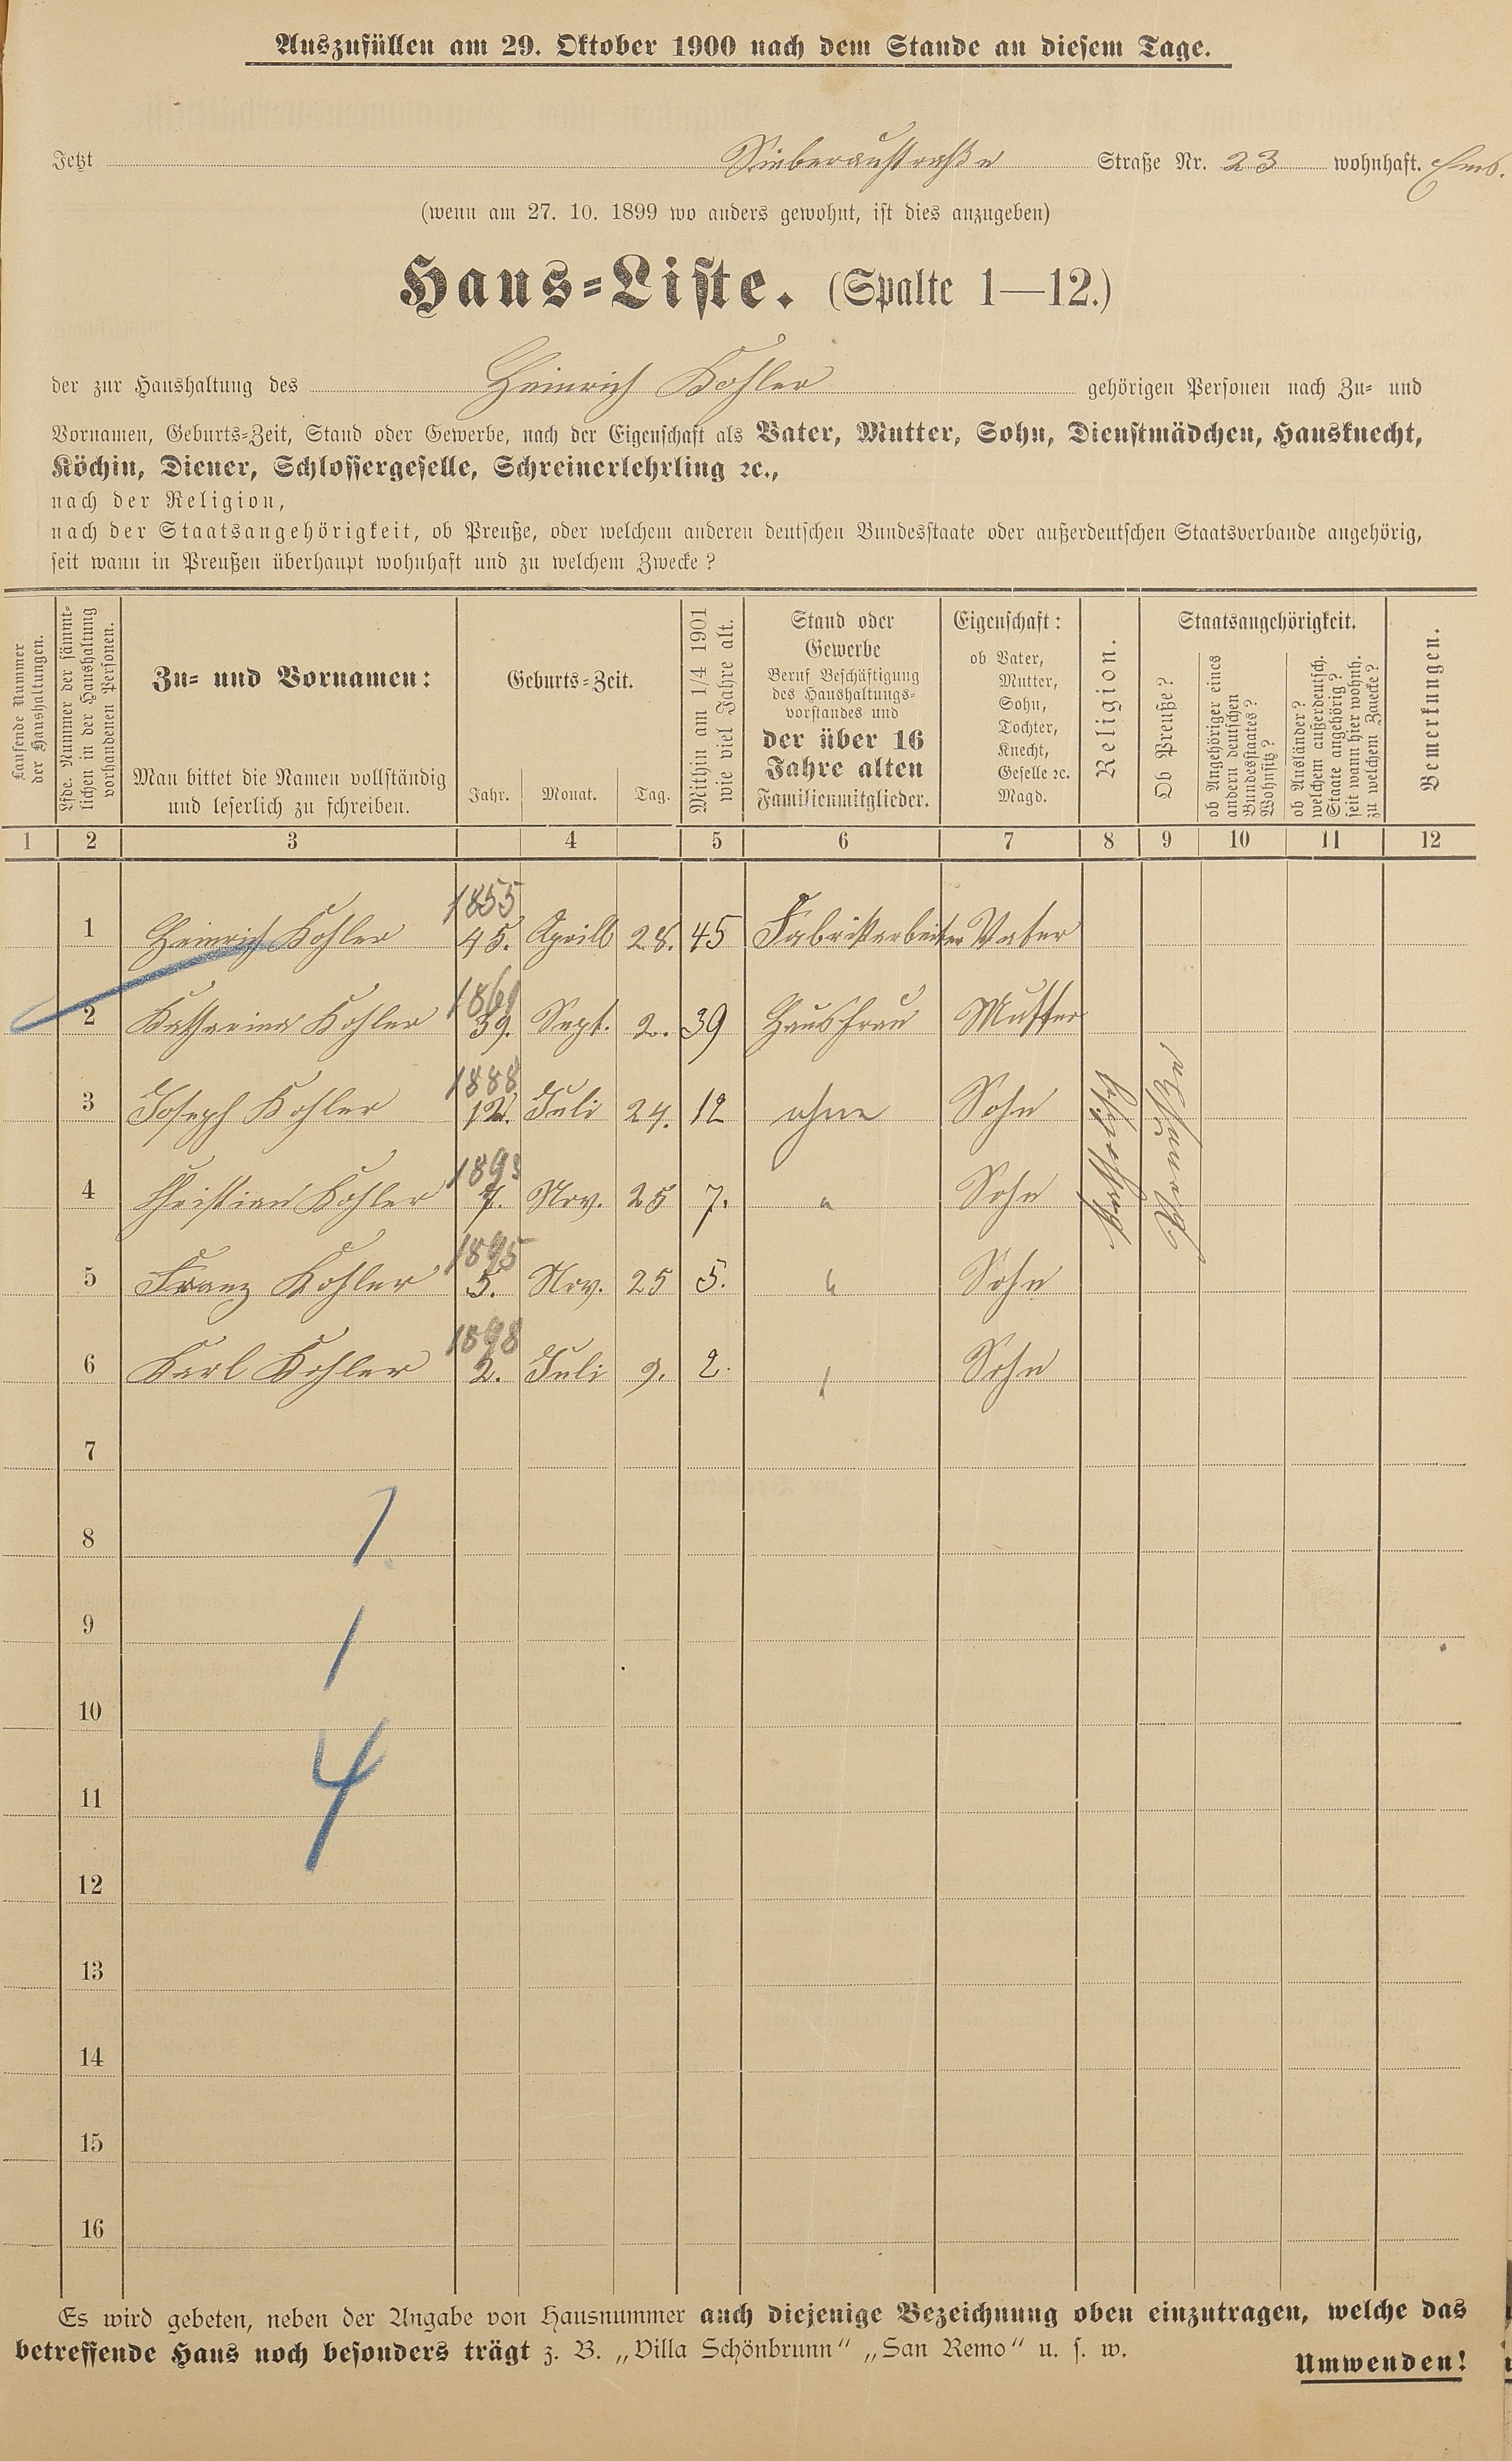 Auszufüllen am 29. Oktober 1900 nach dem Stande an diesem Tage.
Jetzt Sieberaustraße Straße Nr. 23 wohnhaft. Ems.
(wenn am 27. 10. 1899 wo anders gewohnt, ist dies anzugeben)
Haus=Liste. (Spalte 1—12.)
der zur Haushaltung des Heinrich Kohler gehörigen Personen nach Zu= und
Vornamen, Geburts=Zeit, Stand oder Gewerbe, nach der Eigenschaft als Vater, Mutter, Sohn, Dienstmädchen, Hausknecht,
Köchin, Diener, Schlossergeselle, Schreinerlehrling ꝛc.,
nach der Religion,
nach der Staatsangehörigkeit, ob Preuße, oder welchem anderen deutschen Bundesstaate oder außerdeutschen Staatsverbande angehörig,
seit wann in Preußen überhaupt wohnhaft und zu welchem Zwecke?
Laufende Nummer
der Haushaltungen.
Lfde. Nummer der sämmt=
lichen in der Haushaltung
vorhandenen Personen.
Zu= und Vornamen:
Man bittet die Namen vollständig
und leserlich zu schreiben.
Geburts=Zeit.
Jahr. Monat. Tag.
Mithin am 1/4 1901
wie viel Jahre alt.
Stand oder
Gewerbe
Beruf Beschäftigung
des Haushaltungs=
vorstandes und
der über 16
Jahre alten
Familienmitglieder.
Eigenschaft:
ob Vater,
Mutter,
Sohn,
Tochter,
Knecht,
Geselle ꝛc.
Magd.
Religion.
Staatsangehörigkeit.
Ob Preuße?
ob Angehöriger eines
andern deutschen
Bundesstaates?
Wohnsitz?
ob Ausländer?
welchem außerdeutsch.
Staate angehörig?
seit wann hier wohnh.
zu welchem Zwecke?
Bemerkungen.
1 2 3 4 5 6 7 8 9 10 11 12
1855
1 Heinrich Kohler 45. Aprill 28. 45 Fabrikarbeiter Vater
1861
2 Katharina Kohler 39. Sept. 2. 39 Hausfrau Mutter
1888
3 Joseph Kohler 12. Juli 24. 12 ohne Sohn
1893
4 Christian Kohler 7. Nov. 25 7. " Sohn
1895
5 Franz Kohler 5. Nov. 25 5. " Sohn
1898
6 Karl Kohler 2. Juli 9. 2. Sohn
katholisch
Preußen
7
8 1
9 1
10
11 4
12
13
14
15
16
Es wird gebeten, neben der Angabe von Hausnummer auch diejenige Bezeichnung oben einzutragen, welche das
betreffende Haus noch besonders trägt z. B. „Villa Schönbrunn“ „San Remo“ u. s. w.
Umwenden!